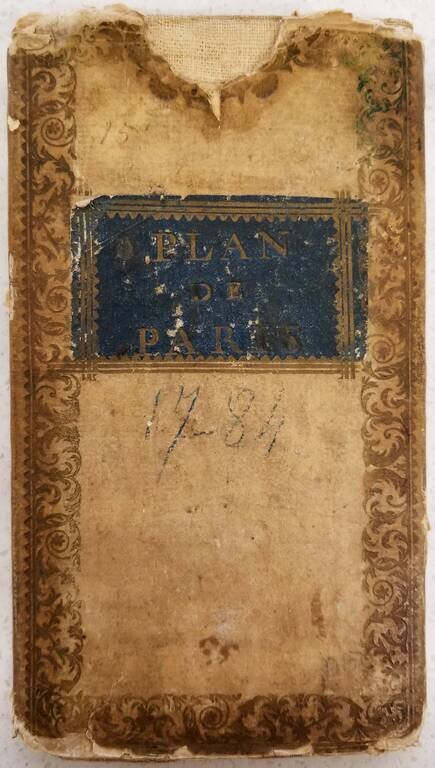 15
PLAN
DE
PARIS
1784